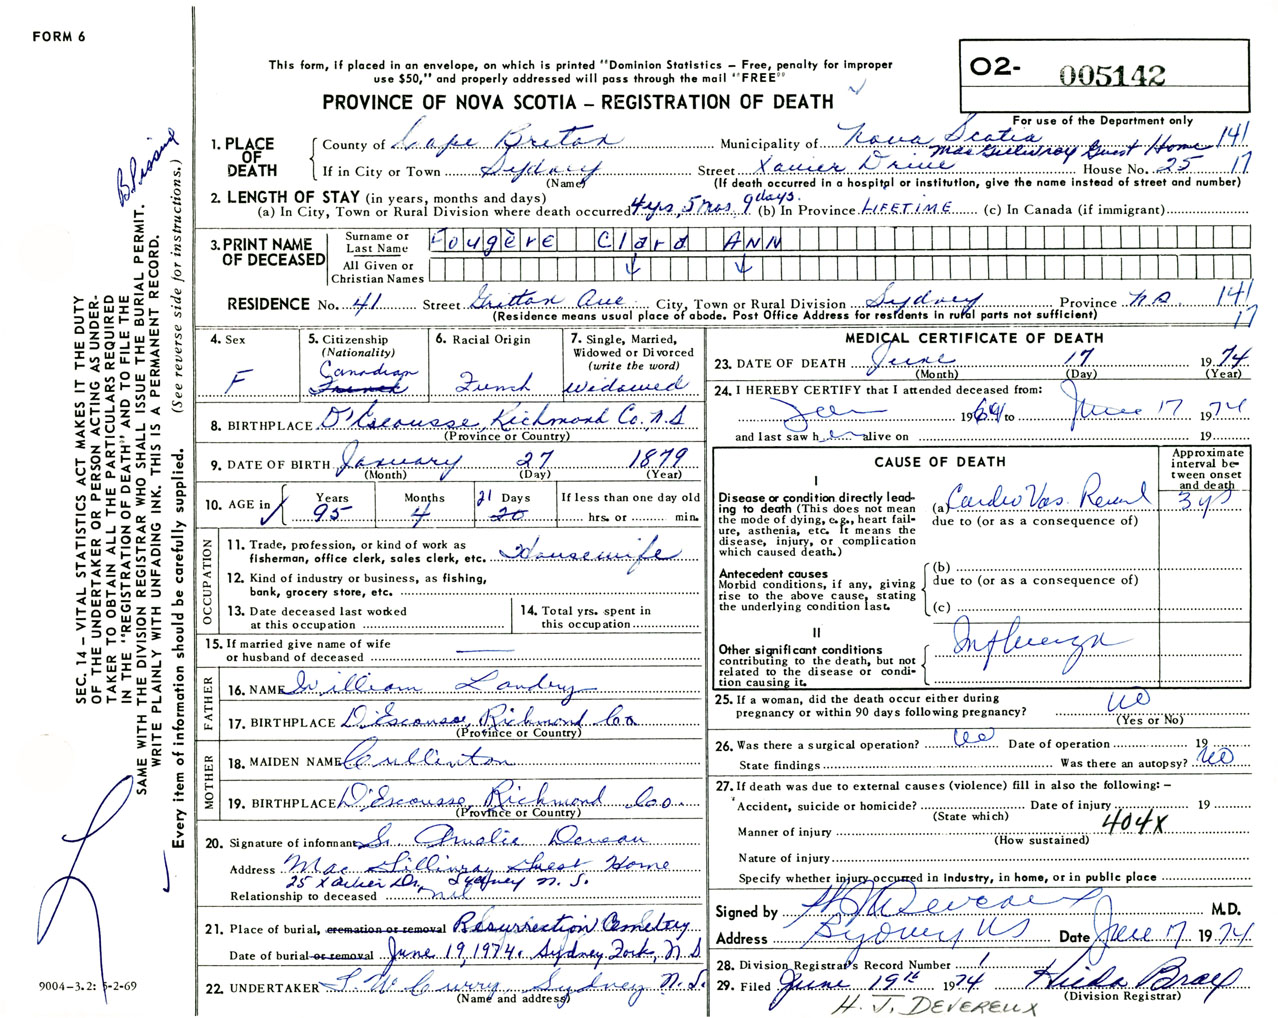 FORM 6
This form, if placed in an envelope, on which is printed "Dominion Statistics – Free, penalty for improper
use $50," and properly addressed will pass through the mail "FREE"
PROVINCE OF NOVA SCOTIA – REGISTRATION OF DEATH
O2- 005142
For use of the Department only
1. PLACE OF DEATH
County of Cape Breton Municipality of Nova Scotia 141
MacGillivray Guest Home
If in City or Town Sydney Street Xavier Drive House No. 25 17
(Name) (If death occurred in a hospital or institution, give the name instead of street and number)
2. LENGTH OF STAY (in years, months and days)
(a) In City, Town or Rural Division where death occurred 4 yrs, 5 mos. 9 days. (b) In Province LIFETIME (c) In Canada (if immigrant)
3. PRINT NAME OF DECEASED
Surname or Last Name Fougère Clara ANN
All Given or Christian Names
RESIDENCE No. 41 Street Gritton Ave City, Town or Rural Division Sydney Province N.S. 141
(Residence means usual place of abode. Post Office Address for residents in rural parts not sufficient) 17
4. Sex F
5. Citizenship (Nationality) Canadian French
6. Racial Origin French
7. Single, Married, Widowed or Divorced (write the word) Widowed
8. BIRTHPLACE D'Escousse, Richmond Co. N.S
(Province or Country)
9. DATE OF BIRTH January 27 1879
(Month) (Day) (Year)
10. AGE in Years 95 Months 4 Days 21 20 If less than one day old hrs. or min.
OCCUPATION
11. Trade, profession, or kind of work as fisherman, office clerk, sales clerk, etc. Housewife
12. Kind of industry or business, as fishing, bank, grocery store, etc.
13. Date deceased last worked at this occupation
14. Total yrs. spent in this occupation
15. If married give name of wife or husband of deceased
FATHER
16. NAME William Landry
17. BIRTHPLACE D'Escousse, Richmond Co.
(Province or Country)
MOTHER
18. MAIDEN NAME Cullinton
19. BIRTHPLACE D'Escousse, Richmond Co.
(Province or Country)
20. Signature of informant Sr. Amelia Deveau
Address MacGillivray Guest Home
25 Xavier Dr. Sydney N.S.
Relationship to deceased nil
21. Place of burial, cremation or removal Resurrection Cemetery
Date of burial or removal June 19, 1974. Sydney Forks, N.S
22. UNDERTAKER T W Curry Sydney N.S.
(Name and address)
MEDICAL CERTIFICATE OF DEATH
23. DATE OF DEATH June 17 1974
(Month) (Day) (Year)
24. I HEREBY CERTIFY that I attended deceased from:
Jan 1969 to June 17 1974
and last saw her alive on 19
CAUSE OF DEATH
Approximate interval between onset and death
I
Disease or condition directly leading to death (This does not mean the mode of dying, e.g., heart failure, asthenia, etc. It means the disease, injury, or complication which caused death.)
(a) Cardio Vas. Renal 3 yrs
due to (or as a consequence of)
Antecedent causes
Morbid conditions, if any, giving rise to the above cause, stating the underlying condition last.
(b)
due to (or as a consequence of)
(c)
II
Other significant conditions
contributing to the death, but not related to the disease or condition causing it.
Influenza
25. If a woman, did the death occur either during pregnancy or within 90 days following pregnancy? no
(Yes or No)
26. Was there a surgical operation? no Date of operation 19
State findings Was there an autopsy? no
27. If death was due to external causes (violence) fill in also the following: –
Accident, suicide or homicide? Date of injury 19
(State which) 404X
Manner of injury
(How sustained)
Nature of injury
Specify whether injury occurred in Industry, in home, or in public place
Signed by H J Devereux M.D.
Address Sydney NS Date June 17 1974
28. Division Registrar's Record Number 1
29. Filed June 19th 1974 Hilda Bray
(Division Registrar)
H. J. DEVEREUX
SEC. 14 – VITAL STATISTICS ACT MAKES IT THE DUTY
OF THE UNDERTAKER OR PERSON ACTING AS UNDER-
TAKER TO OBTAIN ALL THE PARTICULARS REQUIRED
IN THE "REGISTRATION OF DEATH" AND TO FILE THE
SAME WITH THE DIVISION REGISTRAR WHO SHALL ISSUE THE BURIAL PERMIT.
WRITE PLAINLY WITH UNFADING INK. THIS IS A PERMANENT RECORD.
Every item of information should be carefully supplied. (See reverse side for instructions.)
9004-3.2: 5-2-69